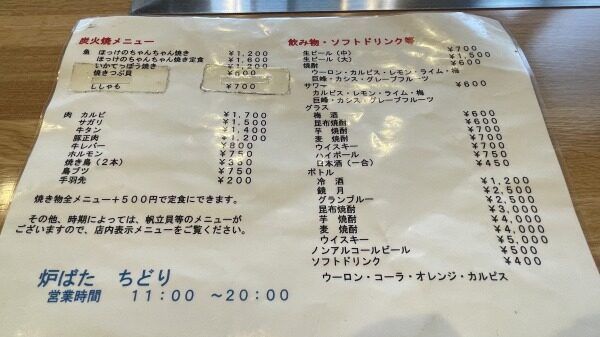 炭火焼メニュー
魚 ほっけのちゃんちゃん焼き ¥1,200
ほっけのちゃんちゃん焼き定食 ¥1,600
いかてっぽう焼き ¥1,200
焼きつぶ貝 ¥600
ししゃも ¥700
肉 カルビ ¥1,700
サガリ ¥1,500
牛タン ¥1,400
豚正肉 ¥1,200
牛レバー ¥800
ホルモン ¥750
焼き鳥(2本) ¥360
鳥ブツ ¥750
手羽先 ¥200
焼き物全メニュー+500円で定食にできます。
その他、時期によっては、帆立貝等のメニューが
ございますので、店内表示メニューをご覧ください。
炉ばた ちどり
営業時間 11:00 ~20:00
飲み物・ソフトドリンク等
生ビール(中) ¥700
生ビール(大) ¥1,500
焼酎 ¥600
ウーロン・カルピス・レモン・ライム・梅
巨峰・カシス・グレープフルーツ
サワー ¥600
カルピス・レモン・ライム・梅
巨峰・カシス・グレープフルーツ
グラス
梅 酒 ¥600
昆布焼酎 ¥600
芋 焼酎 ¥700
麦 焼酎 ¥700
ウイスキー ¥700
ハイボール ¥700
日本酒(一合) ¥450
ボトル
冷 酒 ¥1,200
鏡 月 ¥2,500
グランブルー ¥2,500
昆布焼酎 ¥3,000
芋 焼酎 ¥4,000
麦 焼酎 ¥4,000
ウイスキー ¥5,000
ノンアルコールビール ¥500
ソフトドリンク ¥400
ウーロン・コーラ・オレンジ・カルピス